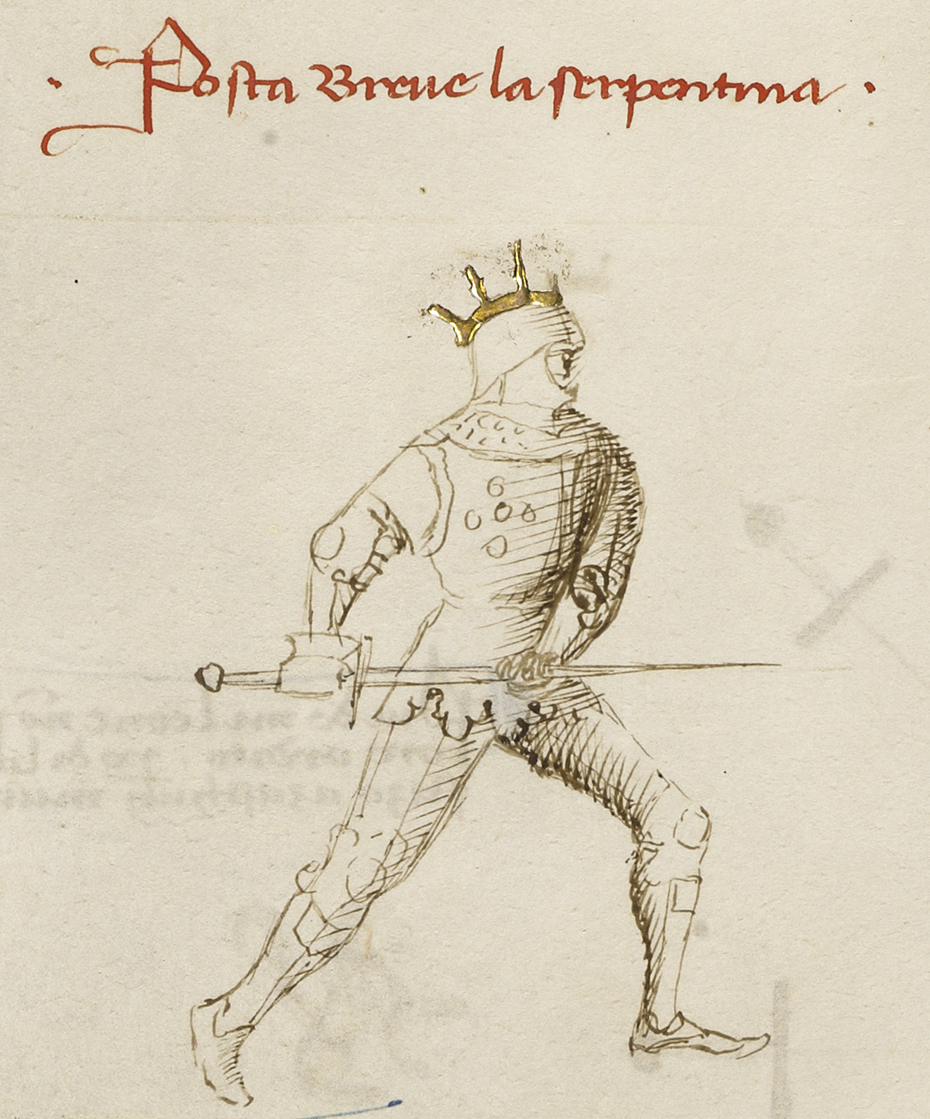 · Posta Breue la serpentina ·